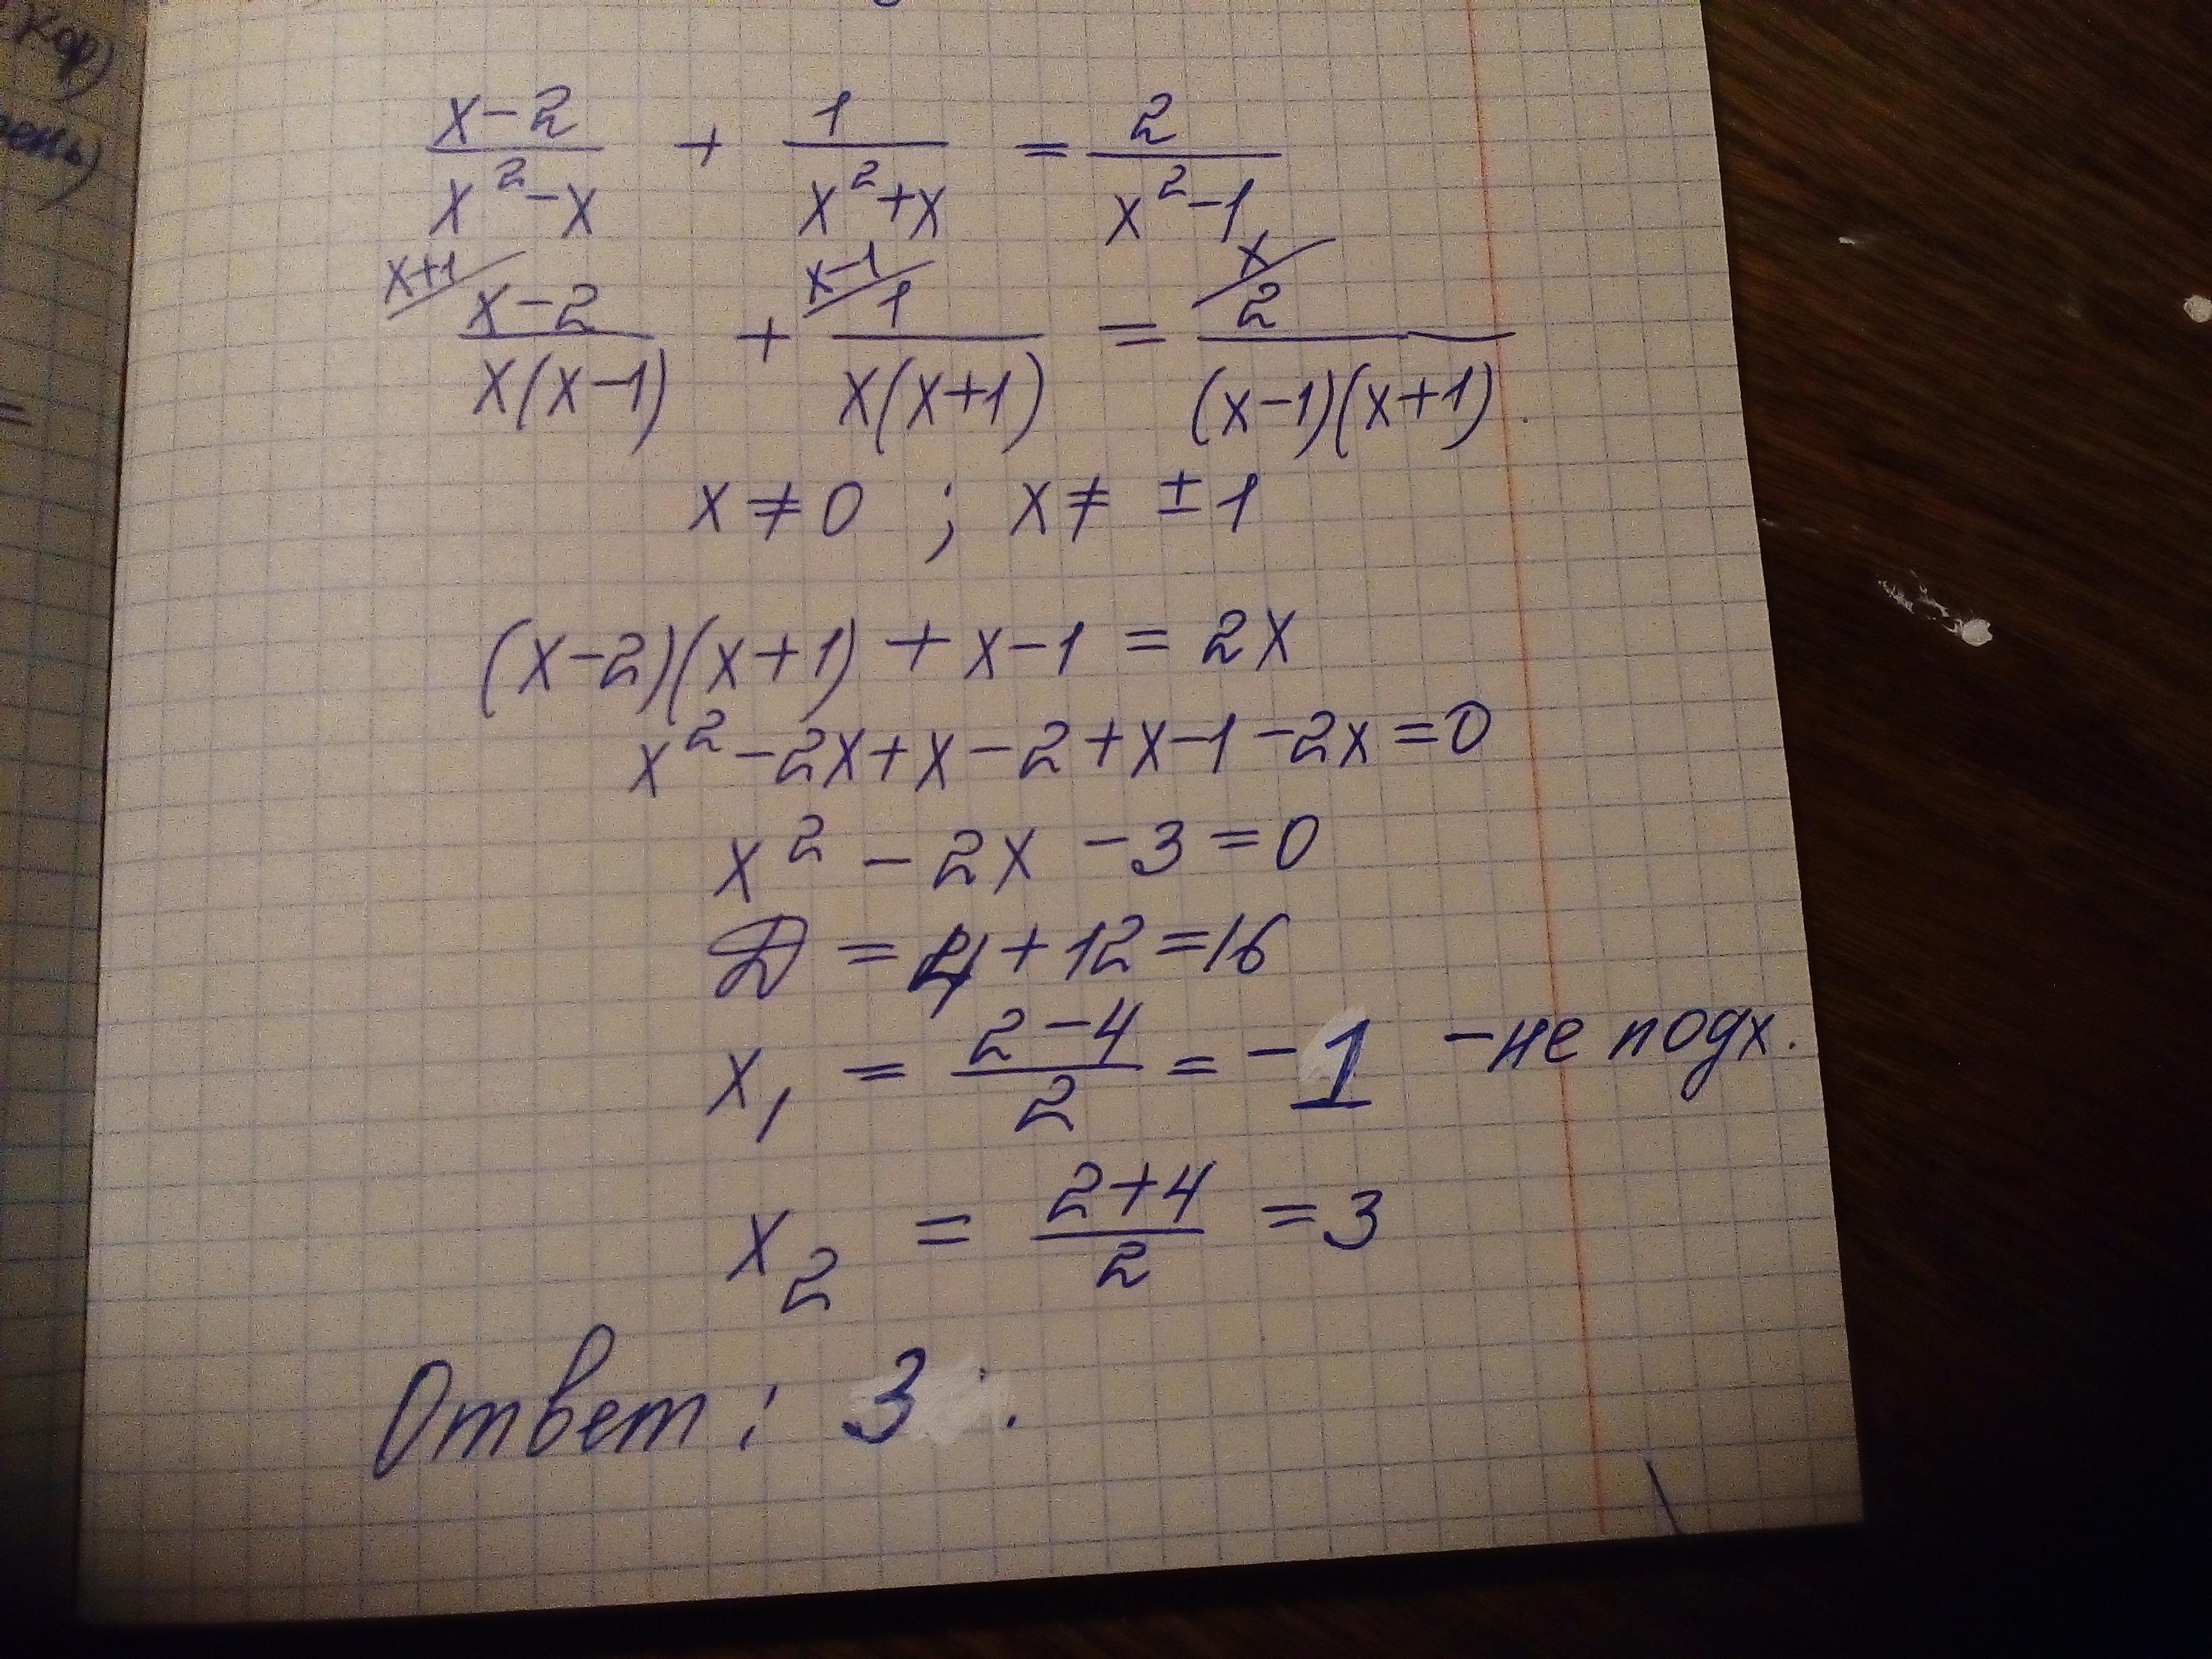 кор)
x-2/x²-x + 1/x²+x = 2/x²-1
x+1/ x-2/x(x-1) + x-1/ 1/x(x+1) = x/ 2/(x-1)(x+1)
x ≠ 0 ; x ≠ ±1
(x-2)(x+1) + x-1 = 2x
x²-2x+x-2+x-1-2x=0
x² - 2x - 3 = 0
D = 4+12=16
x₁ = 2-4/2 = -1 - не подх.
x₂ = 2+4/2 = 3
Ответ: 3.